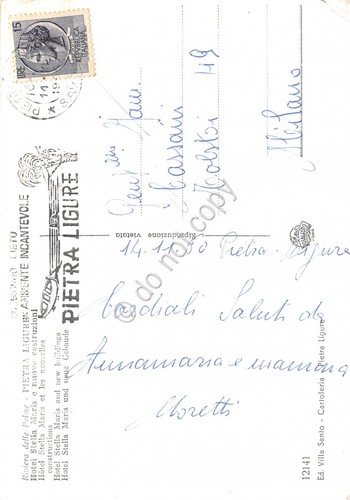 15
REPUBBLICA
14
PIETRA LIGURE
AMBIENTE INCANTEVOLE
PIETRA LIGURE
Gent.
Fam.
Cassani
Tolstoi 49
Milano
Riproduzione vietata
14.11.60 Pietra Ligure
Cordiali Saluti da
Annamaria e mamma
Moretti
do not copy
Riviera delle Palme - PIETRA LIGURE
Hotel Stella Maris e nuove costruzioni
Hôtel Stella Maris et les nouvelles
constructions
Hotel Stella Maris and new buildings
Hotel Stella Maris und neue Gebäude
12141
Ed. Villa Santo - Cartoleria - Pietra Ligure